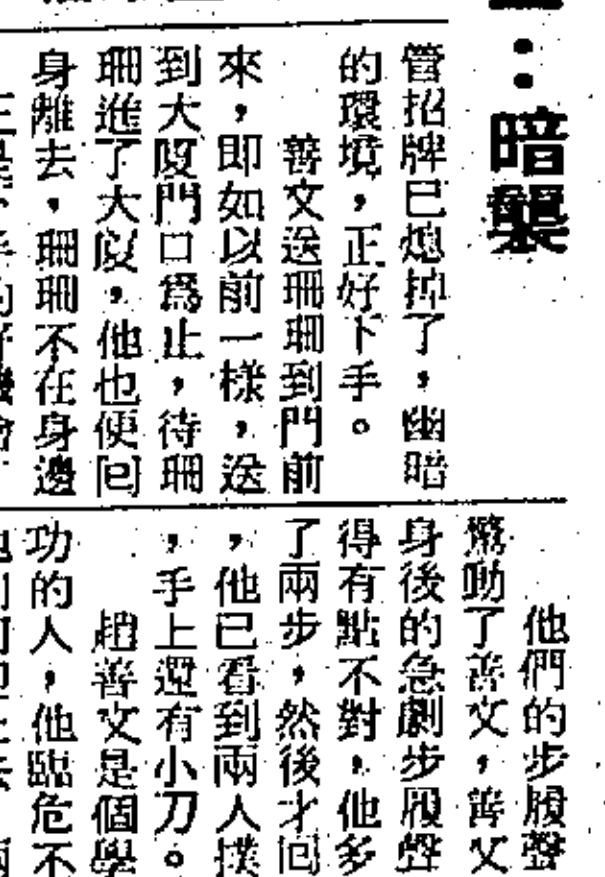 ：暗襲
管招牌已熄掉了，幽暗
的環境，正好下手。
善文送珊珊到門前
來，即如以前一樣，送
到大廈門口爲止，待珊
珊進了大廈，他也便回
身離去，珊珊不在身邊
他們的步履聲
驚動了善文，善文
身後的急劇步履聲
得有點不對，他多
了兩步，然後才回
，他已看到兩人撲
，手上還有小刀。
趙善文是個學
功的人，他臨危不